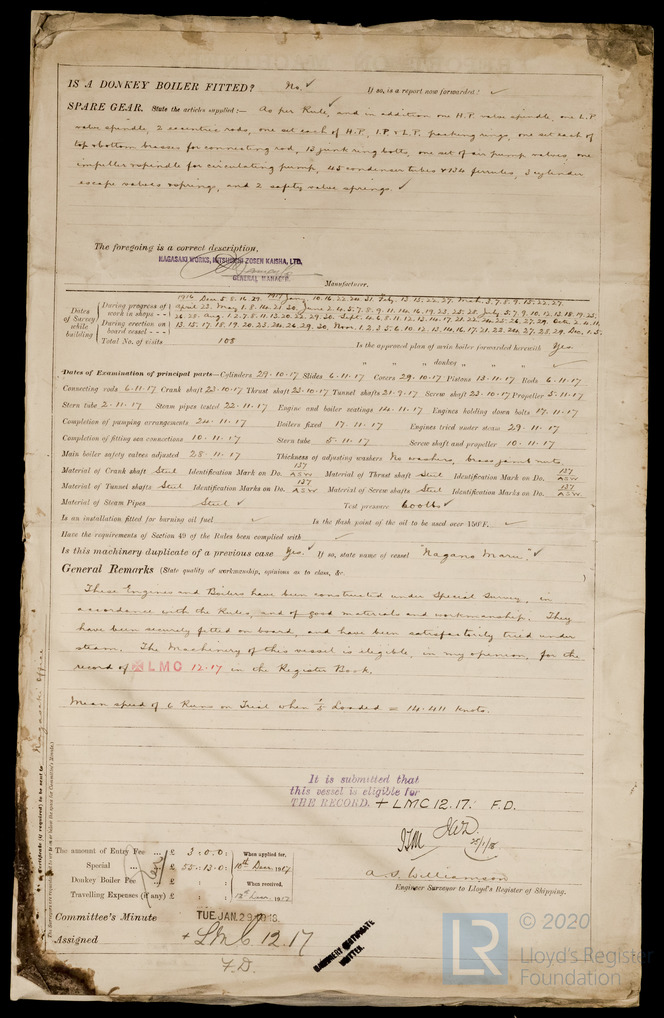 IS A DONKEY BOILER FITTED? No. ✓ If so, is a report now forwarded? ✓
SPARE GEAR. State the articles supplied:— As per Rule, and in addition one H.P. valve spindle, one L.P.
valve spindle, 2 eccentric rods, one set each of H.P., I.P. & L.P. packing rings, one set each of
top & bottom brasses for connecting rod, 13 junk ring bolts, one set of air pump valves, one
impeller & spindle for circulating pump, 45 condenser tubes & 134 ferrules, 3 cylinder
escape valves & springs, and 2 safety valve springs. ✓
The foregoing is a correct description,
NAGASAKI WORKS, MITSUBISHI ZOSEN KAISHA, LTD.
GENERAL MANAGER.
Manufacturer.
Dates of Survey while building
During progress of work in shops - - 1916 Dec. 5. 8. 16. 29. 1917 Jany. 10. 16. 22. 24. 31. Feby. 13. 15. 22. 27. Mch. 3. 7. 8. 9. 13. 22. 27.
April 23. May 1. 8. 14. 21. 30. June
During erection on board vessel - - -
Total No. of visits 108
Is the approved plan of main boiler forwarded herewith Yes.
" " " donkey " " " ✓
Dates of Examination of principal parts—Cylinders 29.10.17 Slides 6.11.17 Covers 29.10.17 Pistons 13.11.17 Rods 6.11.17
Connecting rods 6.11.17 Crank shaft 23.10.17 Thrust shaft 23.10.17 Tunnel shafts 21.9.17 Screw shaft 23.10.17 Propeller 5.11.17
Stern tube 2.11.17 Steam pipes tested 22.11.17 Engine and boiler seatings 14.11.17 Engines holding down bolts 17.11.17
Completion of pumping arrangements 24.11.17 Boilers fixed 17.11.17 Engines tried under steam 29.11.17
Completion of fitting sea connections 10.11.17 Stern tube 5.11.17 Screw shaft and propeller 10.11.17
Main boiler safety valves adjusted 28.11.17 Thickness of adjusting washers No washers, brass joint nuts.
Material of Crank shaft Steel Identification Mark on Do. 137 ASW Material of Thrust shaft Steel Identification Mark on Do. 137 ASW
Material of Tunnel shafts Steel Identification Marks on Do. 137 ASW Material of Screw shafts Steel Identification Marks on Do. 137 ASW
Material of Steam Pipes Steel ✓ Test pressure 600 lb. ✓
Is an installation fitted for burning oil fuel ✓ Is the flash point of the oil to be used over 150°F. ✓
Have the requirements of Section 49 of the Rules been complied with ✓
Is this machinery duplicate of a previous case Yes. ✓ If so, state name of vessel "Nagano Maru". ✓
General Remarks (State quality of workmanship, opinions as to class, &c.
These Engines and Boilers have been constructed under Special Survey, in
accordance with the Rules, and of good materials and workmanship. They
have been securely fitted on board, and have been satisfactorily tried under
steam. The Machinery of this vessel is eligible, in my openion, for the
record of ✠ LMC 12.17 in the Register Book.
Mean speed of 6 Runs on Trial when 1/5 Loaded = 14.411 knots.
It is submitted that
this vessel is eligible for
THE RECORD. + LMC 12.17. F.D.
29/1/18
The amount of Entry Fee ... £ 3 : 0 : 0 When applied for,
Special ... £ 55 : 13 : 0 10th Decr. 1917
Donkey Boiler Fee ... £ : : When received,
Travelling Expenses (if any) £ : : 12th Decr. 1917
A. S. Williamson
Engineer Surveyor to Lloyd's Register of Shipping.
Committee's Minute TUE. JAN. 29. 1918
Assigned + LMC 12.17
F.D.
MACHINERY CERTIFICATE
WRITTEN.
Nagasaki Office
© 2020
LR
Lloyd's Register
Foundation